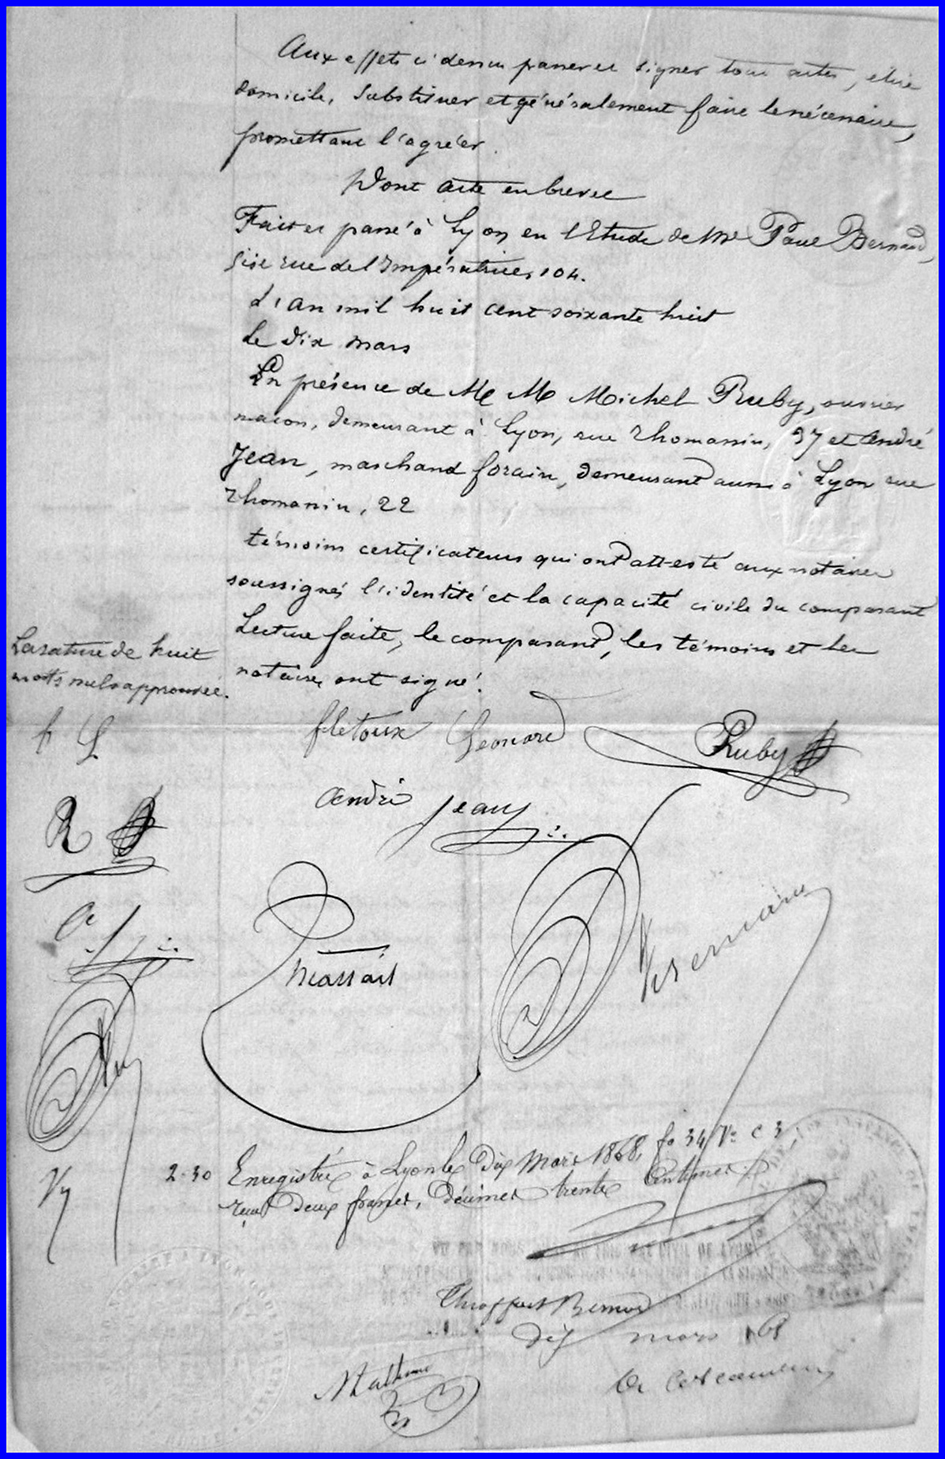 Aux effets ci dessus passer et signer tous actes, élire
domicile, substituer et généralement faire le nécessaire,
promettant l'agréer.
Dont acte en brevet
Fait et passé à Lyon en l'Etude de Me Paul Bernard,
sise rue de l'Impératrice, 104.
L'an mil huit cent soixante huit
Le dix mars
En présence de M M Michel Ruby, ouvrier
maçon, demeurant à Lyon, rue Thomassin, 37 et André
Jean, marchand forain, demeurant aussi à Lyon rue
Thomassin, 22
témoins certificateurs qui ont attesté aux notaires
soussignés l'identité et la capacité civile du comparant
Lecture faite, le comparant, les témoins et les
notaires ont signé.
La rature de huit
mots nuls approuvée.
f L
fletoux Leonard
Ruby
R
André Jean
a j
2.30 Enregistré à Lyon le dix Mars 1868, fo 34 Vo C 3,
reçu deux francs, décimes trente Centimes.
dix mars 68